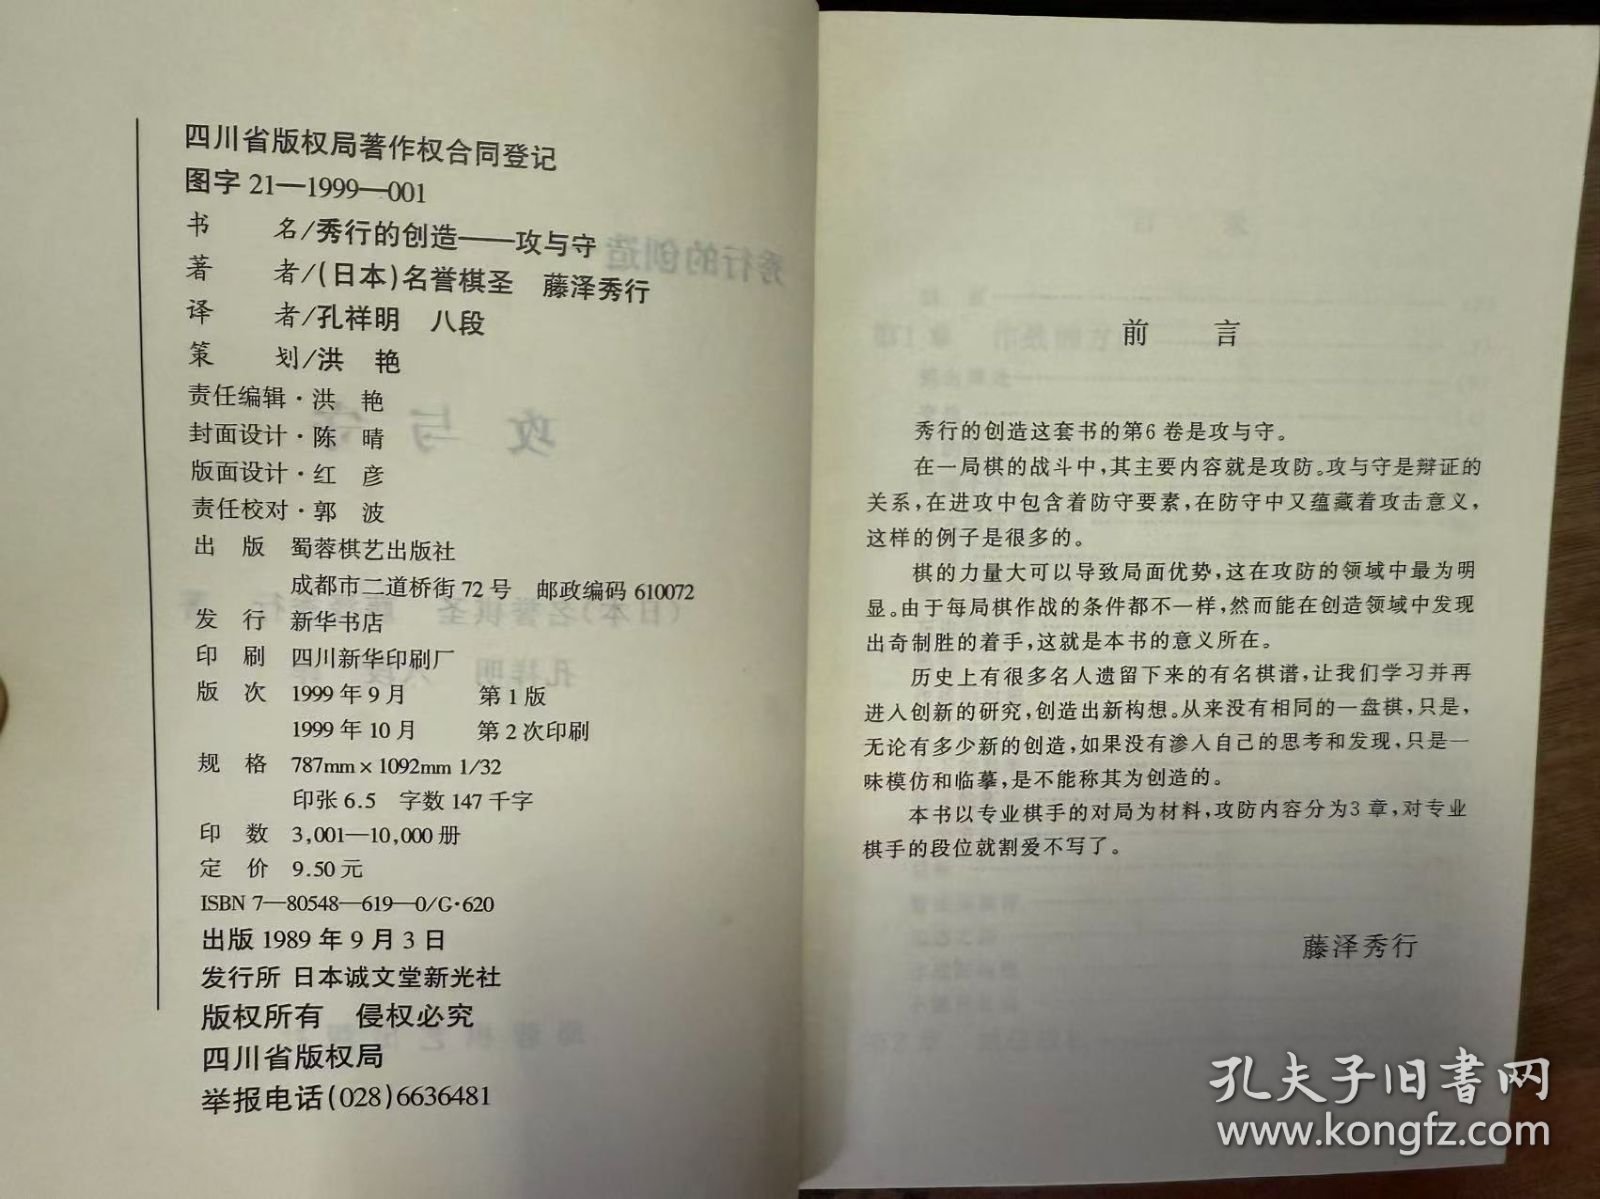 四川省版权局著作权合同登记
图字 21—1999—001
书 名/秀行的创造——攻与守
著 者/(日本)名誉棋圣 藤泽秀行
译 者/孔祥明 八段
策 划/洪 艳
责任编辑·洪 艳
封面设计·陈 晴
版面设计·红 彦
责任校对·郭 波
出 版 蜀蓉棋艺出版社
成都市二道桥街72号 邮政编码 610072
发 行 新华书店
印 刷 四川新华印刷厂
版 次 1999年9月 第1版
1999年10月 第2次印刷
规 格 787mm×1092mm 1/32
印张6.5 字数147千字
印 数 3,001—10,000册
定 价 9.50元
ISBN 7—80548—619—0/G·620
出版 1989年9月3日
发行所 日本诚文堂新光社
版权所有 侵权必究
四川省版权局
举报电话(028)6636481
前 言
秀行的创造这套书的第6卷是攻与守。
在一局棋的战斗中,其主要内容就是攻防。攻与守是辩证的
关系,在进攻中包含着防守要素,在防守中又蕴藏着攻击意义,
这样的例子是很多的。
棋的力量大可以导致局面优势,这在攻防的领域中最为明
显。由于每局棋作战的条件都不一样,然而能在创造领域中发现
出奇制胜的着手,这就是本书的意义所在。
历史上有很多名人遗留下来的有名棋谱,让我们学习并再
进入创新的研究,创造出新构想。从来没有相同的一盘棋,只是,
无论有多少新的创造,如果没有渗入自己的思考和发现,只是一
味模仿和临摹,是不能称其为创造的。
本书以专业棋手的对局为材料,攻防内容分为3章,对专业
棋手的段位就割爱不写了。
藤泽秀行
孔夫子旧書网
www.kongfz.com